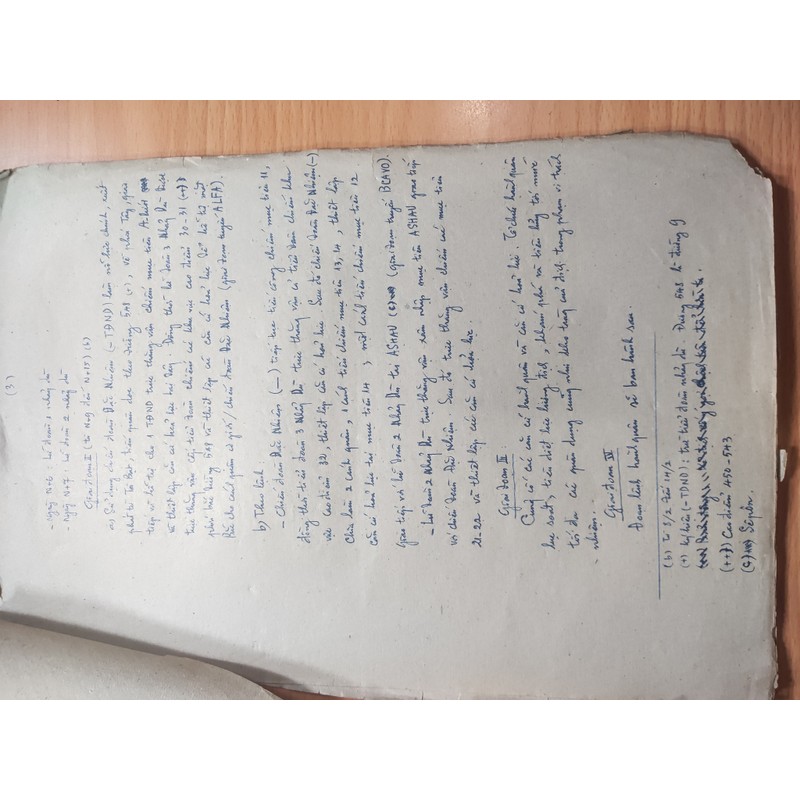 (3)
- Ngày N+6 : Lữ đoàn 1 nhảy dù
- Ngày N+7 : Lữ đoàn 2 nhảy dù
Giai đoạn II (từ N+9 đến N+15) (b)
a) Sử dụng chiến đoàn Đặc Nhiệm (- TĐND) làm nỗ lực chính, xuất
phát từ Tà Bạt, tiến quân dọc theo đường 548 (+), về phía Tây, giao
tiếp và hỗ trợ cho 1 TĐND trực thăng vận chiếm mục tiêu A.Lưới
và thiết lập căn cứ hoả lực tại đây. Đồng thời lữ đoàn 3 Nhảy Dù được
trực thăng vận cấp tiểu đoàn chiếm các khu vực cao điểm 30-31 (++)
phía bắc đường 548 và thiết lập các căn cứ hoả lực để hỗ trợ mặt
Bắc cho cánh quân cơ giới/chiến đoàn Đặc Nhiệm (giai đoạn tuyến ALFA).
b) Theo lệnh :
- Chiến đoàn Đặc Nhiệm (-) tiếp tục tiến công chiếm mục tiêu 11,
đồng thời tiểu đoàn 3 Nhảy Dù trực thăng vận cả tiểu đoàn chiếm khu
vực cao điểm 32, thiết lập căn cứ hoả lực. Sau đó chiến đoàn Đặc Nhiệm (-)
chia làm 2 cánh quân, 1 cánh tiến chiếm mục tiêu 13, 14, thiết lập
căn cứ hoả lực tại mục tiêu 14 ; một cánh tiến chiếm mục tiêu 12
giao tiếp với lữ đoàn 2 Nhảy Dù tại ASHAU (giai đoạn tuyến BRAVO).
- Lữ đoàn 2 Nhảy Dù trực thăng vận xâm nhập mục tiêu ASHAU giao tiếp
với chiến đoàn Đặc Nhiệm. Sau đó trực thăng vận chiếm các mục tiêu
21-22 và thiết lập các căn cứ hoả lực.
Giai đoạn III :
Củng cố các căn cứ hành quân và căn cứ hoả lực. Tổ chức hành quân
lục soát, tiêu diệt lực lượng địch, khám phá và tiêu hủy tới mức
tối đa các quân dụng cũng như kho tàng của địch trong phạm vi trách
nhiệm.
Giai đoạn IV
Đoạn lệnh hành quân sẽ ban hành sau.
(b) Từ 8/2 đến 14/2
(+) Ký hiệu (- TĐND) : trừ tiểu đoàn nhảy dù. Đường 548 là đường 9
(++) Cao điểm 450-543
Sêpôn.